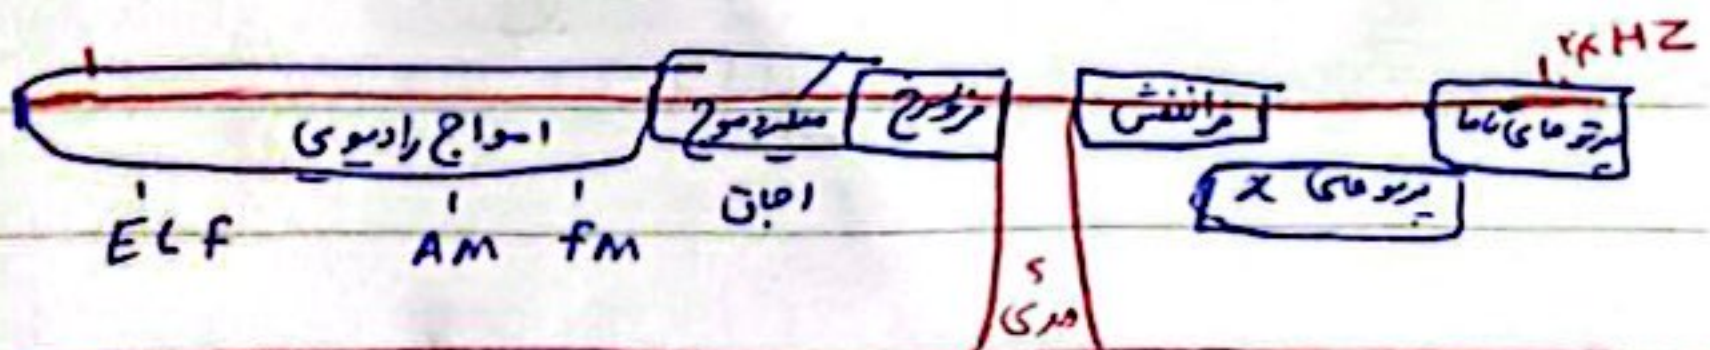 ۱۰²⁴ HZ
امواج رادیوی میکرو موج فروسرخ فرابنفش پرتوهای گاما
اجاق پرتوهای X
ELF AM FM
مرئی